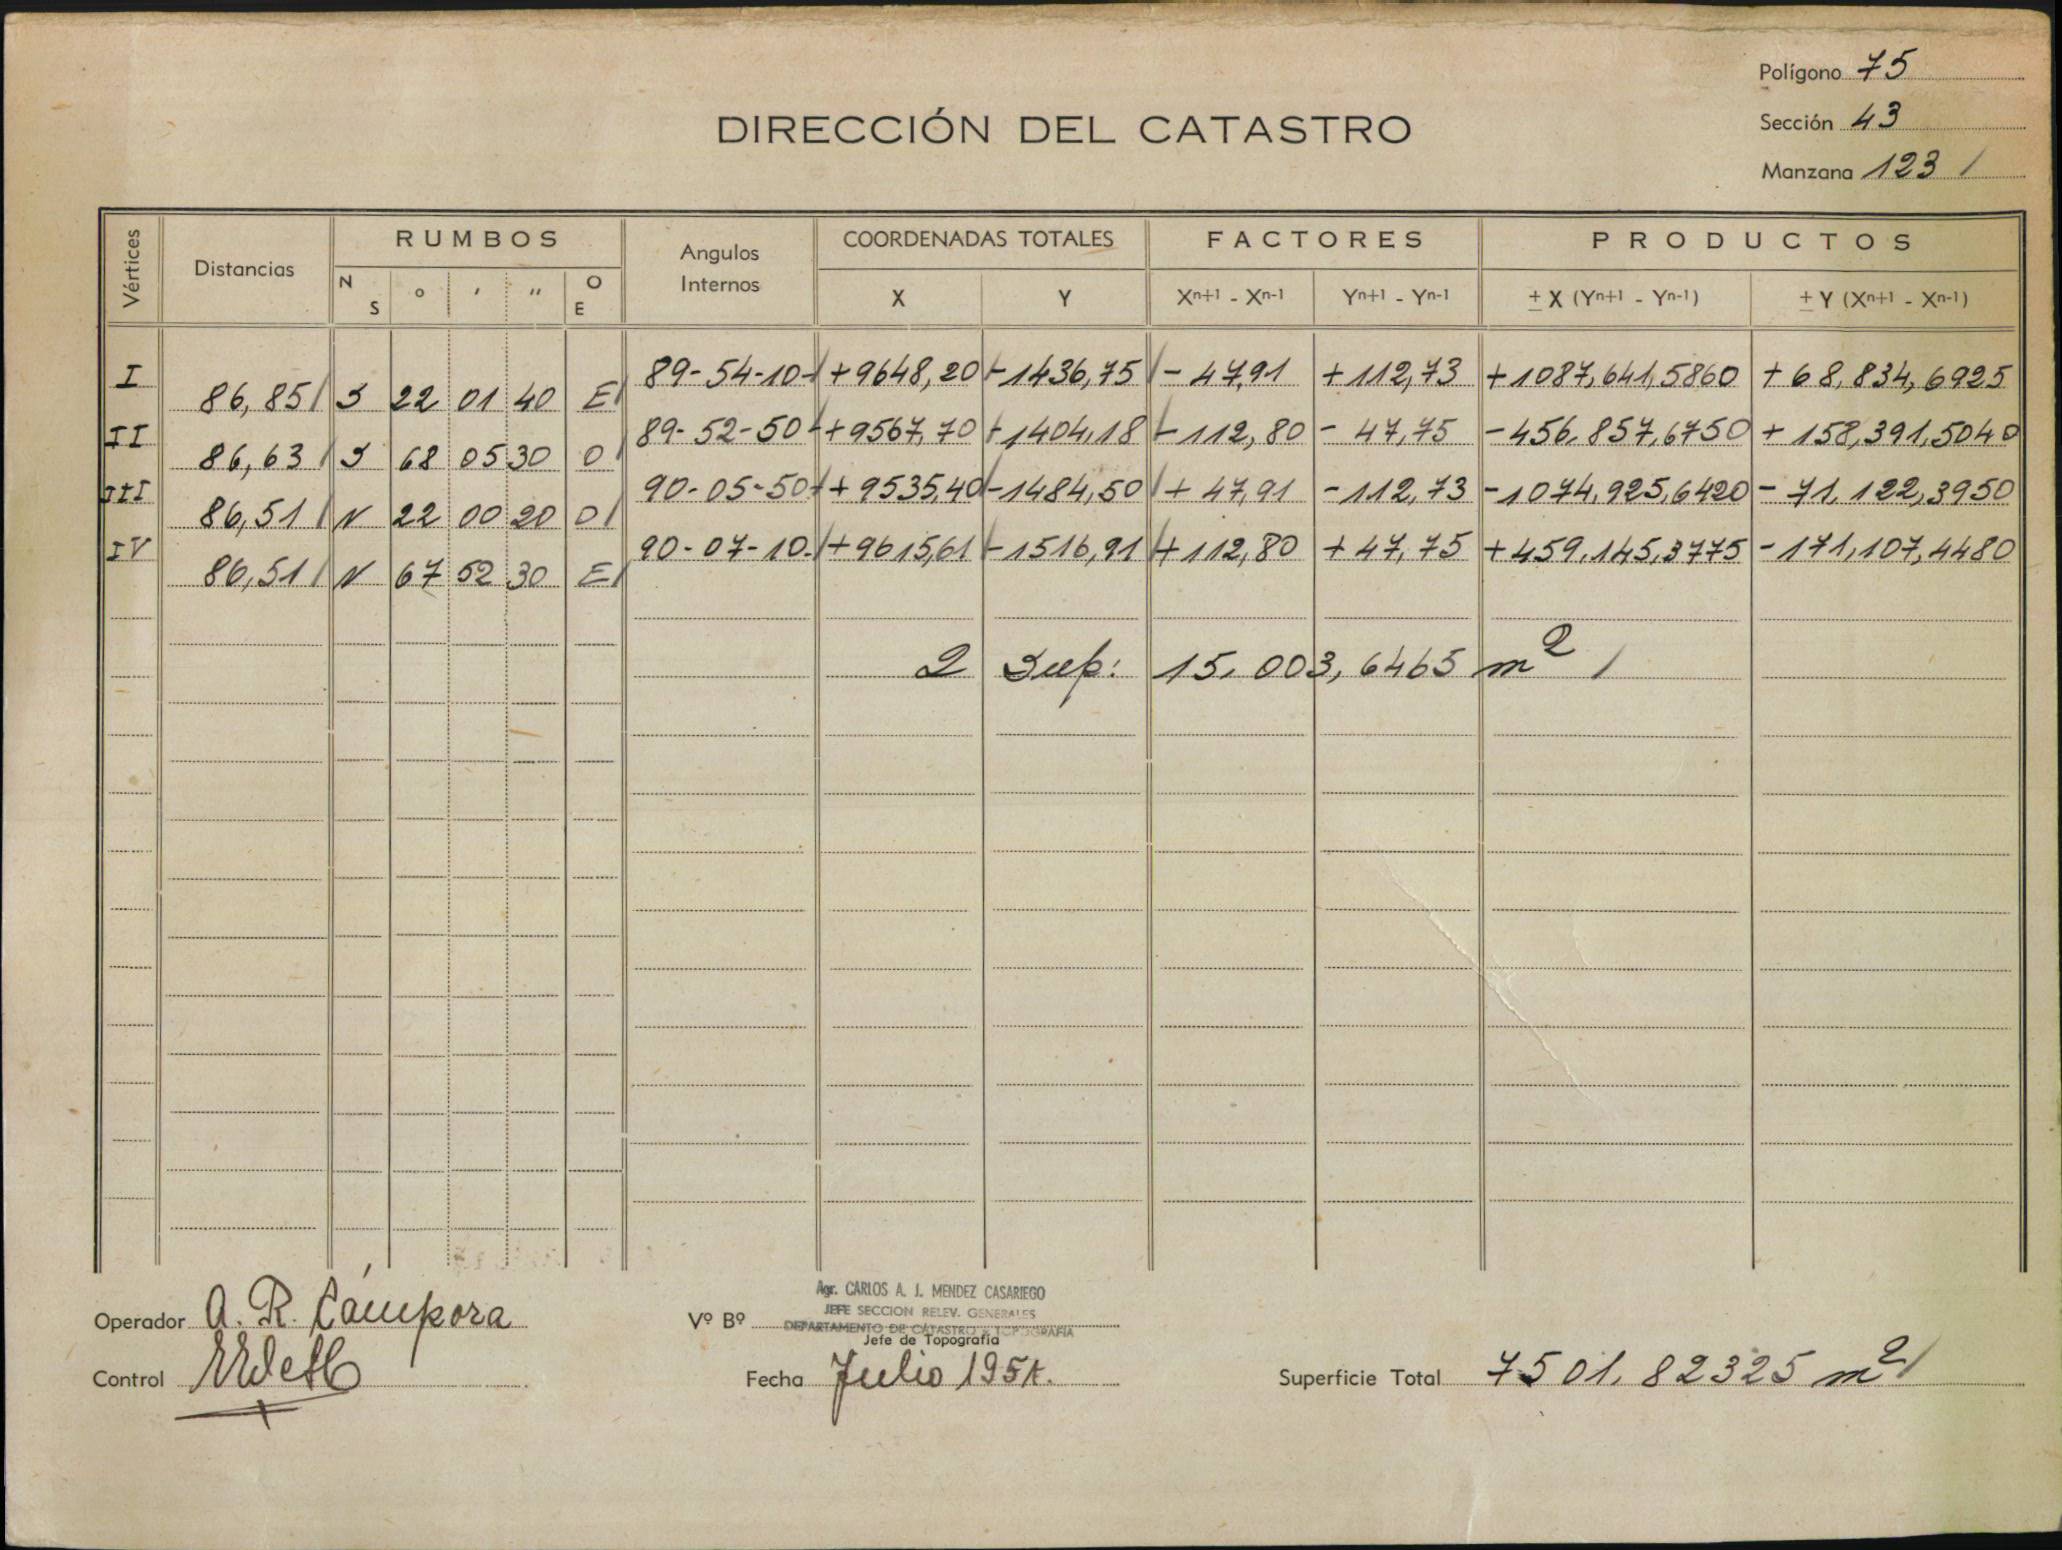 Polígono 75
Sección 43
Manzana 123 /
DIRECCIÓN DEL CATASTRO
Vértices Distancias RUMBOS Angulos Internos COORDENADAS TOTALES FACTORES PRODUCTOS
N S ° ′ ″ O E X Y Xn+1 - Xn-1 Yn+1 - Yn-1 ± X (Yn+1 - Yn-1) ± Y (Xn+1 - Xn-1)
I 89-54-10 +9648,20 -1436,75 - 47,91 +112,73 +1087,641,5860 +68,834,6925
86,85 / S 22 01 40 E /
II 89-52-50 +9567,70 -1404,18 -112,80 - 47,75 -456,857,6750 + 158,391,5040
86,63 / S 68 05 30 O /
III 90-05-50 +9535,40 -1484,50 + 47,91 -112,73 -1074,925,6420 - 71,122,3950
86,51 / N 22 00 20 O /
IV 90-07-10 +9615,61 -1516,91 +112,80 +47,75 +459,145,3775 -171,107,4480
86,51 / N 67 52 30 E /
2 Sup: 15.003,6465 m2 /
Agr. CARLOS A. J. MENDEZ CASARIEGO
JEFE SECCION RELEV. GENERALES
DEPARTAMENTO DE CATASTRO Y TOPOGRAFIA
Operador A. R. Cámpora Vº Bº
Jefe de Topografía
Control Fecha Julio 1951. Superficie Total 7501,82325 m2 /